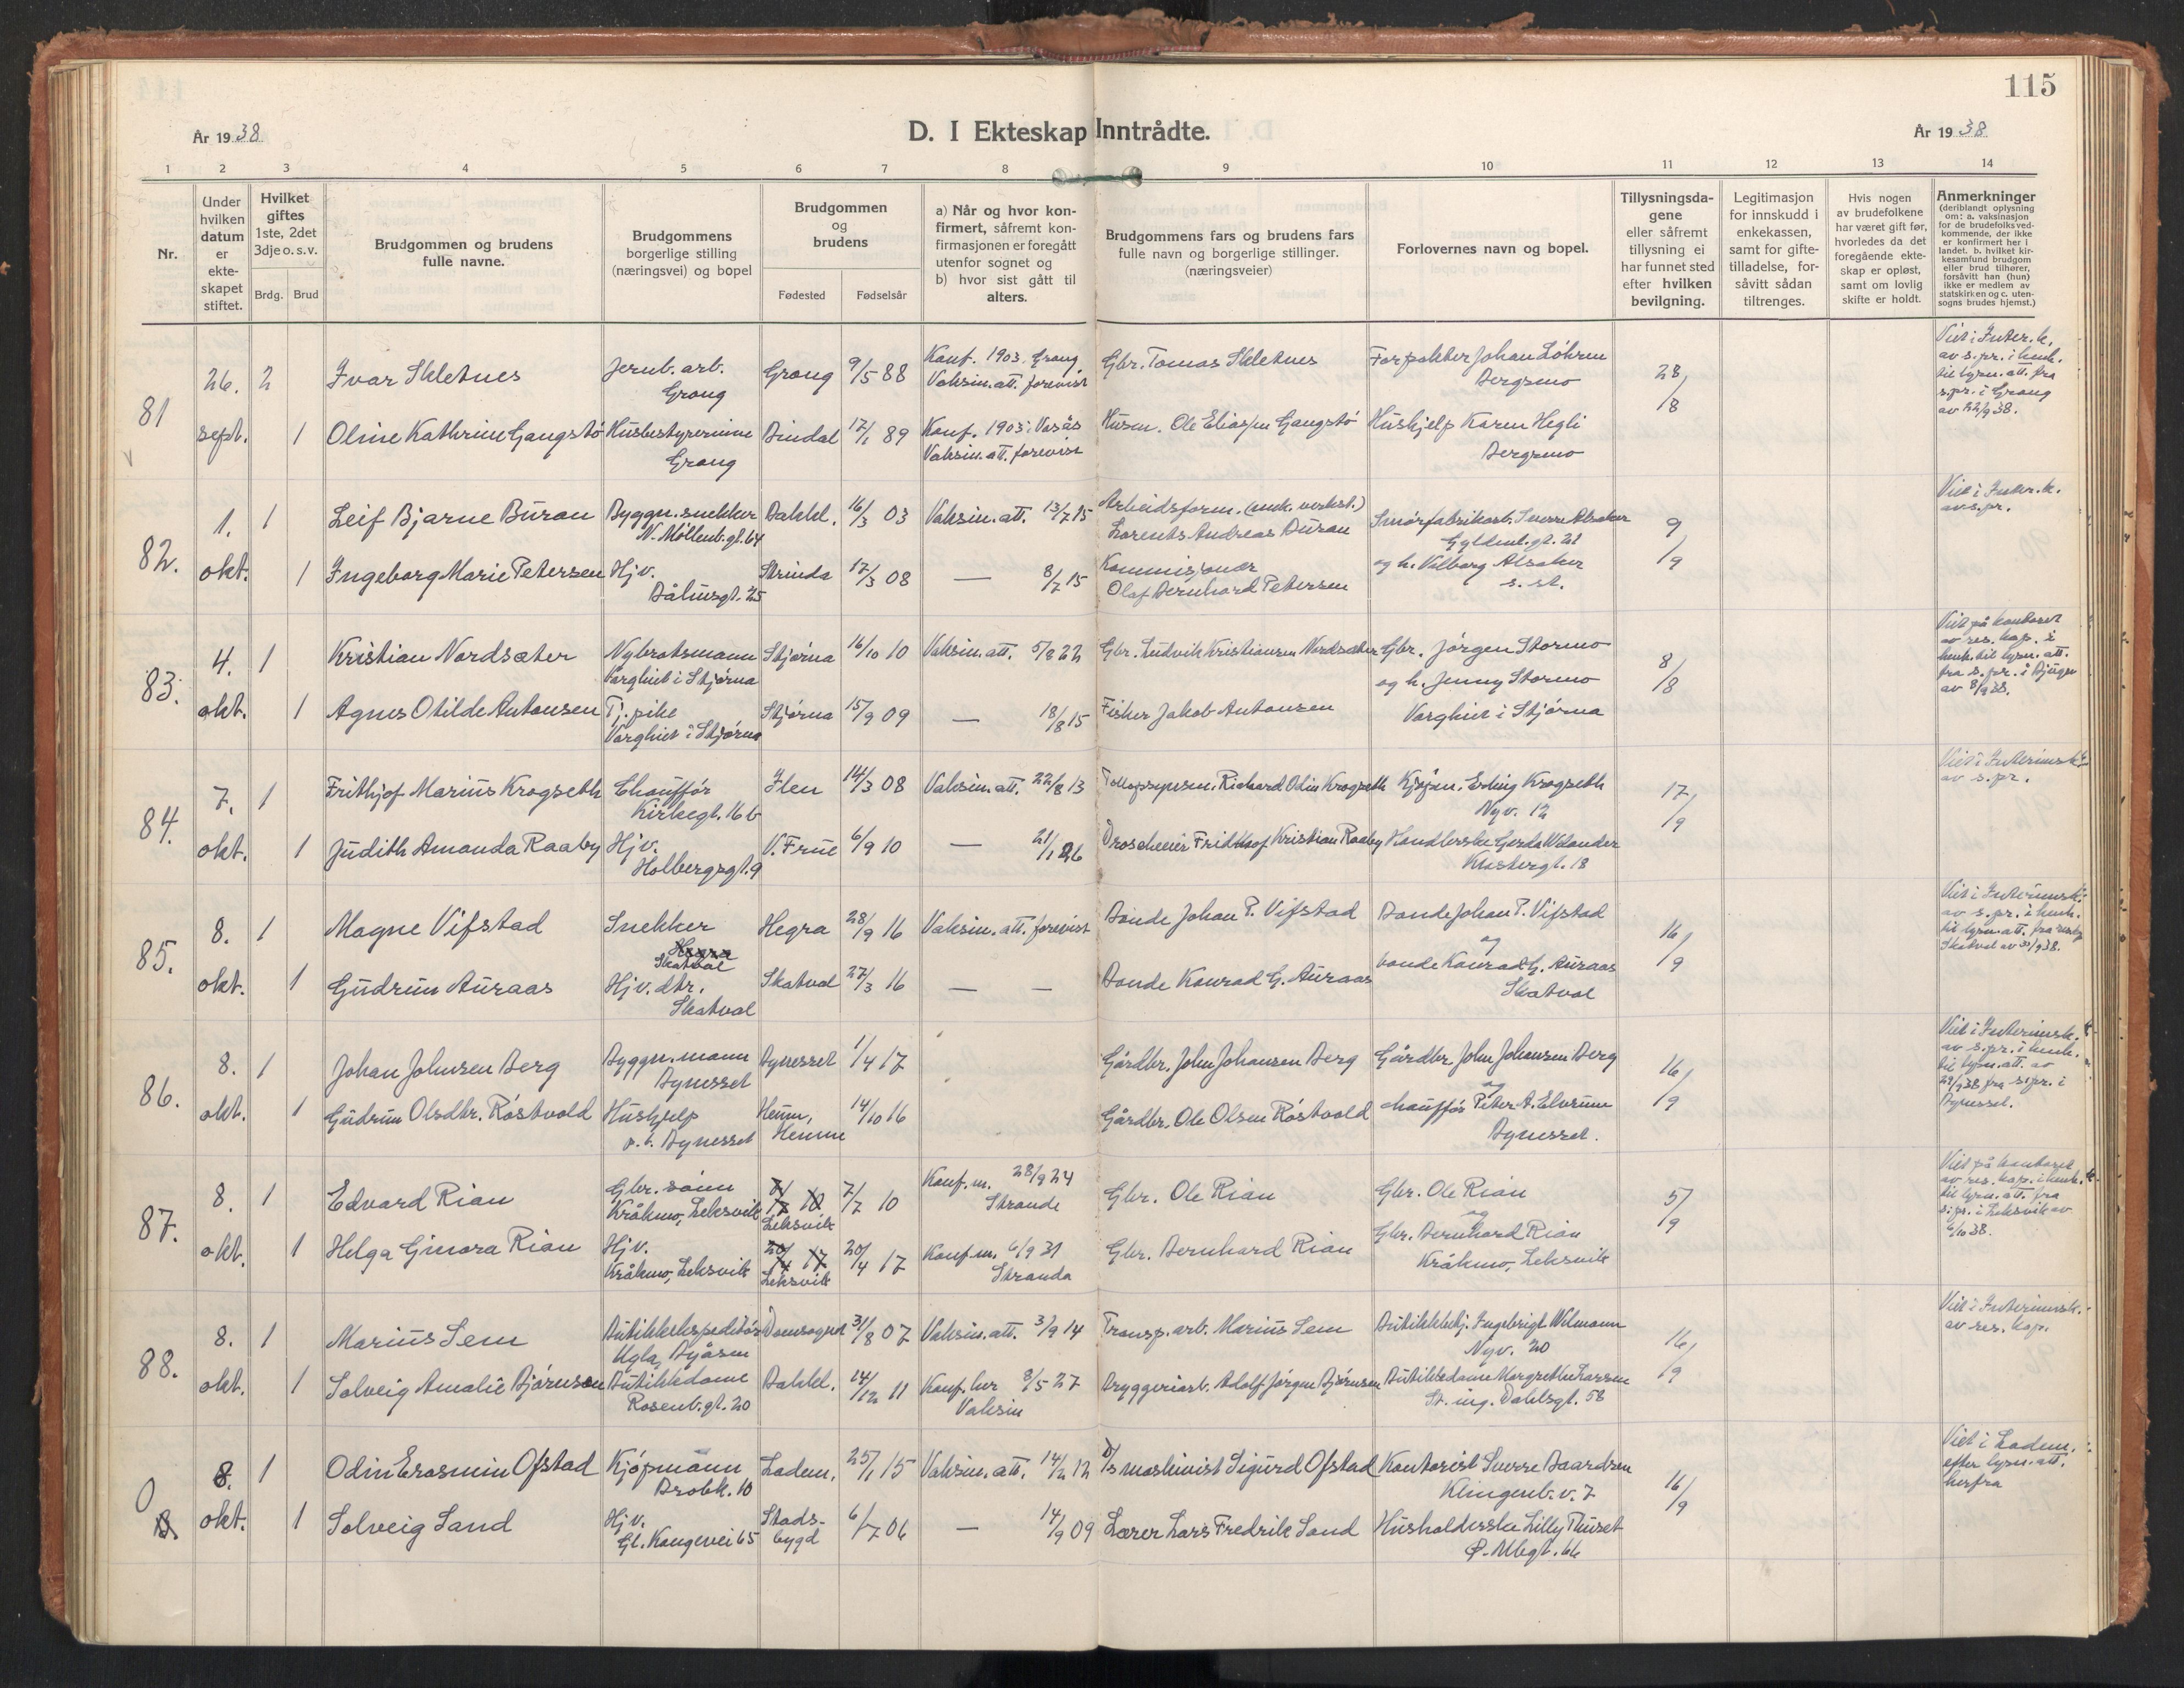 115
År 1938
D. I Ekteskap Inntrådte.
År 1938
1 2 3 4 5 6 7 8 9 10 11 12 13 14
Nr.
Under hvilken datum er ekte- skapet stiftet.
Hvilket giftes 1ste, 2det 3dje o. s. v.
Brdg. Brud
Brudgommen og brudens fulle navne.
Brudgommens borgerlige stilling (næringsvei) og bopel
Brudgommen og brudens
Fødested Fødselsår
a) Når og hvor kon- firmert, såfremt kon- firmasjonen er foregått utenfor sognet og b) hvor sist gått til alters.
Brudgommens fars og brudens fars fulle navn og borgerlige stillinger. (næringsveier)
Forlovernes navn og bopel.
Tillysningsda- gene eller såfremt tillysning ei har funnet sted efter hvilken bevilgning.
Legitimasjon for innskudd i enkekassen, samt for gifte- tilladelse, for- såvitt sådan tiltrenges.
Hvis nogen av brudefolkene har været gift før, hvorledes da det foregående ekte- skap er opløst, samt om lovlig skifte er holdt.
Anmerkninger (deriblandt oplysning om: a. vaksinasjon for de brudefolks ved- kommende, der ikke er konfirmert her i landet. b. hvilket kir- kesamfund brudgom eller brud tilhører, forsåvitt han (hun) ikke er medlem av statskirken og c. uten- sogns brudes hjemst.)
81 26. sept. 2 Ivar Skletnes Jernb. arb. Grong Grong 9/5 88 Konf. 1903, Grong Vaksin. att. forevist Gbr. Tomas Skletnes Forpakter Johan Løhren Bergsmo 28/8
Viet i Inter. k. av s.pr. i henh. til lysn. att. fra s.pr. i Grong av 22/9 38.
1 Oline Kathrine Gangstø Husbestyrerinne Grong Bindal 17/1 89 Konf. 1903, Vasås Vaksin. att. forevist Husm. Ole Eliassen Gangstø Hushjelp Karen Hegli Bergsmo
82. 1. okt. 1 Leif Bjarne Buran Byggn. snekker N. Møllenb. gt. 64 Bakkl. 16/3 03 Vaksin. att. 13/7 15 Arbeidsform. (mek. verkst.) Lorents Andreas Buran Smørfabrikarb. Sverre Alsaker Gyldenl. gt. 21 9/9
Viet i Inter. k. av s.pr.
1 Ingeborg Marie Petersen Hjv. Båhusgt. 25 Strinda 17/3 08 — 8/7 15 Kommisjonær Olaf Bernhard Petersen og h. Valborg Alsaker s. st.
83. 4. okt. 1 Kristian Nordsæter Nybrotsmann Varghiet i Stjørna Stjørna 16/10 10 Vaksin. att. 5/8 22 Gbr. Ludvik Kristiansen Nordsæter Gbr. Jørgen Stormo 8/8
Viet på kontoret av res. kap. i henh. til lysn. att. fra s.pr. i Bjugn av 8/9 38.
1 Agnes Otilde Antonsen Tj. pike Varghiet i Stjørna Stjørna 15/9 09 — 18/8 15 Fisker Jakob Antonsen og h. Jenny Stormo Varghiet i Stjørna
84. 7. okt. 1 Frithjof Marius Krogseth Chauffør Kirkegt. 16 b Ilen 14/3 08 Vaksin. att. 22/8 13 Tollopsynsm. Richard Odin Krogseth Kjøpm. Erling Krogseth Nyv. 12 17/9
Viet i Interimsk. av s.pr.
1 Judith Amanda Raaby Hjv. Holbergsgt. 9 V. Frue 6/9 10 — 21/1 26 Droscheeier Fridthjof Kristian Raaby Handlerske Gerda Welander Klostergt. 18
85. 8. okt. 1 Magne Vifstad Snekker Skatval Hegra 28/9 16 Vaksin. att. forevist Bonde Johan P. Vifstad Bonde Johan P. Vifstad og 16/9
Viet i Interimsk. av s.pr. i henh. til lysn. att. fra Skatval av 30/9 38.
1 Gudrun Auraas Hjv. dtr. Skatval Skatval 27/3 16 — — Bonde Konrad G. Auraas bonde Konrad G. Auraas Skatval
86. 8. okt. 1 Johan Johnsen Berg Byggn. mann Bynesset Bynesset 1/4 17 Gårdbr. John Johansen Berg Gårdbr. John Johansen Berg og 16/9
Viet i Interimsk. av s.pr. i henh. til lysn. att. av 29/9 38 fra s.pr. i Bynesset.
1 Gudrun Olsdtr. Røstvold Hushjelp p.t. Bynesset Heim, Hemne 14/10 16 Gårdbr. Ole Olsen Røstvold chauffør Peter A. Elvrum Bynesset.
87. 8. okt. 1 Edvard Rian Gbr. sønn Kråkmo, Leksvik Leksvik 7/7 10 Konf. m. 28/9 24 Strande Gbr. Ole Rian Gbr. Ole Rian og 5/9
Viet på kontoret av res. kap. i henh. til lysn. att. fra s.pr. i Leksvik av 6/10 38.
1 Helga Gjinora Rian Hjv. Kråkmo, Leksvik Leksvik 20/4 17 Konf. m. 6/9 31 Stranda Gbr. Bernhard Rian Gbr. Bernhard Rian Kråkmo, Leksvik
88. 8. okt. 1 Marius Sem Butikkekspeditør Ugla, Byåsen Domsognet 31/8 07 Vaksin. att. 3/9 14 Transp. arb. Marius Sem Butikkbetj. Ingebrigt Wilmann Nyv. 20 16/9
Viet i Interimsk. av res. kap.
1 Solveig Amalie Bjørnson Butikkdame Rosenb. gt. 20 Bakkl. 14/12 11 Konf. her 8/5 27 Vaksin Bryggeriarb. Adolf Jørgen Bjørnsen Butikkdame Margrethe Larssen St. ing. Dahlsgt. 58
0 8. okt. 1 Odin Erasmin Ofstad Kjøpmann Brobk. 10 Ladem. 25/1 15 Vaksin. att. 14/2 12 D/S maskinist Sigurd Ofstad Kontorist Sverre Baardsen Klingenb. v. 7 16/9
Viet i Ladem. efter lysn. att. herfra
1 Solveig Sand Hjv. Gl. Kongevei 65 Stads- bygd 6/7 06 — 14/9 09 Lærer Lars Fredrik Sand Husholderske Lilly Thuset Ø. Allégt. 66